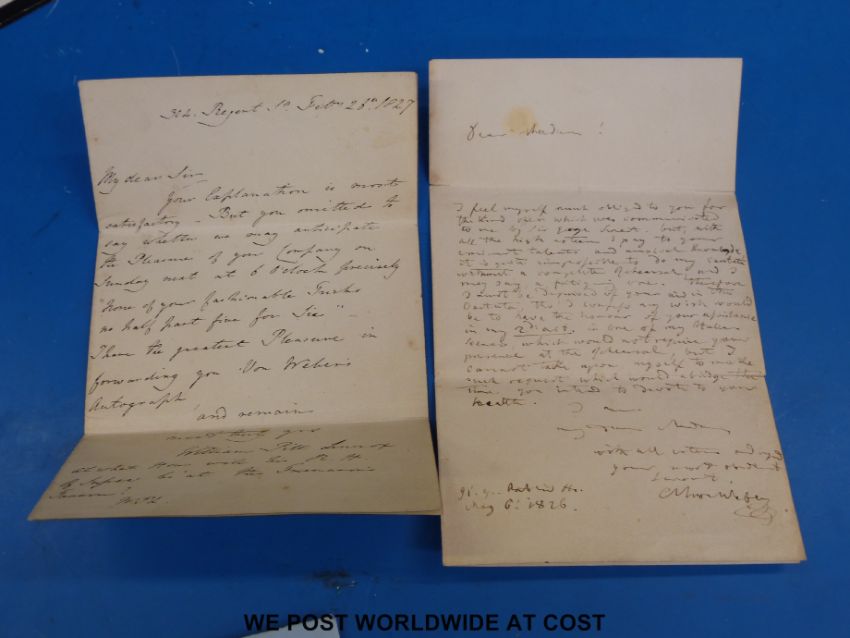 304. Regent St. Feby 26th 1827
My dear Sir
Your Explanation is most
satisfactory - But you omitted to
say whether we may anticipate
the Pleasure of your Company on
Sunday next at 6 O'clock precisely
"None of your fashionable
no half past five for Six" -
I have the greatest Pleasure in
forwarding you Von Weber's
Autograph
and remains
most truly yrs
William Pitt Lennox
at what Hour will his R. H.
be at the
W.P.L.
Dear Madam!
I feel myself much obliged to you for
the kind which was communicated
to me by Sir George Smart. but, with
all the high esteem I pay to your
eminent talents and musical knowledge
it is quite impossible to do my cantata
without a complete Rehearsal, and I
may say a fatiguing one. Therefore
I must be deprived of your aid in the
Cantata, tho' I my wish would
be to have the honour of your assistance
in my 2d act. in one of my Italian
Scenes, which would not require your
presence at the Rehearsal, but I
cannot take upon myself to make
such request which would abridge the
time you intend to devote to your
health.
I am
my dear Madam
with all esteem and regard
your most obedient
servant.
91. Gt. Portland St.
May 6. 1826.
CMvon Weber
WE POST WORLDWIDE AT COST